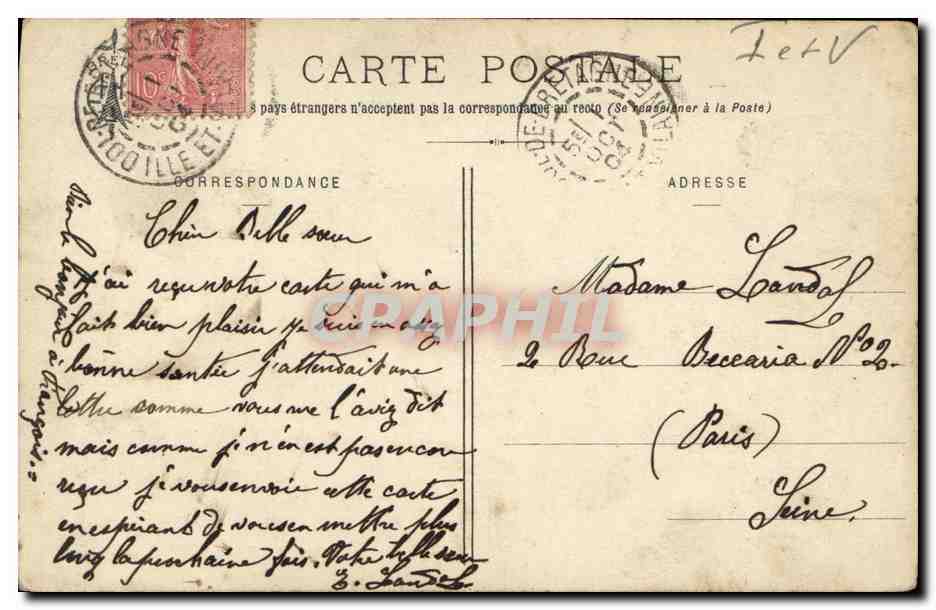 I et V
CARTE POSTALE
s pays étrangers n'acceptent pas la correspondance au recto (Se renseigner à la Poste)
CORRESPONDANCE
Chèr Belle sœur
j'ai reçu votre carte qui m'a
fait bien plaisir je suis en
bonne santée j'attendait une
lettre comme vous me l'aviz dit
mais comme j'n'en est pas encore
reçu j'e vous envoie cette carte
en espérant de vous en mettre plus
long la prochaine fois. Votre belle sœur
E. Landal
bonjour à François
ADRESSE
Madame Landal
2 Rue Beccaria N° 2
(Paris)
Seine.
ILLE ET
DE-BRETAGNE
OCT
04
CPAPHIL